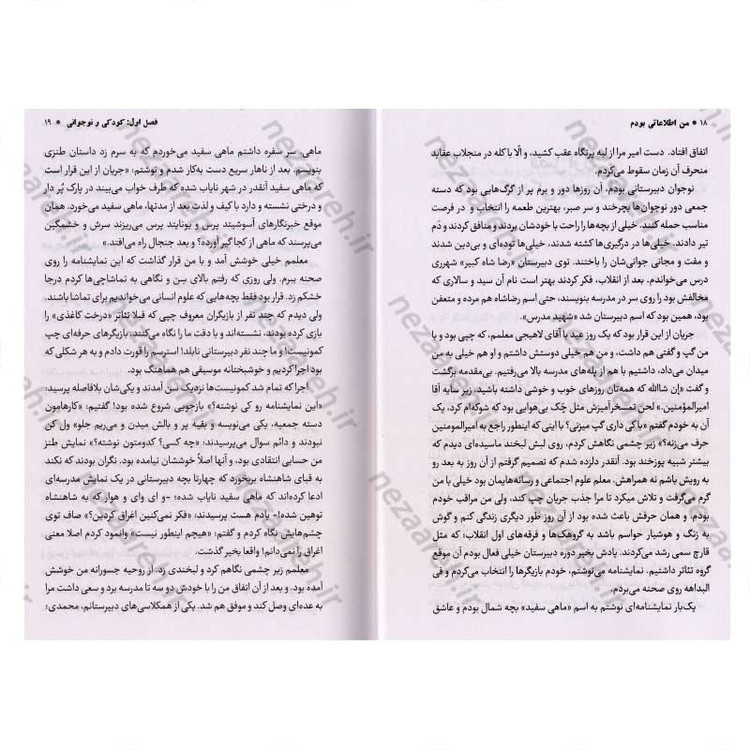 ۱۸ ● من اطلاعاتی بودم
اتفاق افتاد. دست امیر مرا از لبه پرتگاه عقب کشید، و الّا با کله در منجلاب عقاید
منحرف آن زمان سقوط می‌کردم.
نوجوان دبیرستانی بودم. آن روزها دور و برم پر از گرگ‌هایی بود که دسته
جمعی دور نوجوان‌ها بچرخند و سر صبر، بهترین طعمه را انتخاب و در فرصت
مناسب حمله کنند. خیلی از بچه‌ها را راحت با خودشان بردند و منافق کردند و دَم
تیر دادند. خیلی‌ها در درگیری‌ها کشته شدند، خیلی‌ها توده‌ای و بی‌دین شدند
و مفت و مجانی جوانی‌شان را باختند. توی دبیرستان «رضا شاه کبیر» شهرری
درس می‌خواندم. بعد از انقلاب، فکر کردند بهتر است نام آن سید و سالاری که
مخالفش بود را روی سر در مدرسه بنویسند، حتی اسم رضاشاه هم مرده و متعفن
بود، همین بود که اسم دبیرستان شد «شهید مدرس».
جریان از این قرار بود که یک روز صد با آقای لاهیجی معلمم، که چپی بود و با
من گپ و گفتی هم داشت، و من هم خیلی دوستش داشتم و او هم خیلی به من
میدان می‌داد، داشتیم با هم از پله‌های مدرسه بالا می‌رفتیم. بی‌مقدمه برگشت
و گفت «إن شاالله که همه‌تان روزهای خوب و خوشی داشته باشید، زیر سایه آقا
امیرالمؤمنین.» لحن تمسخرآمیزش مثل چَک بی‌هوایی بود که شوکه‌ام کرد، یک
آن به خودم گفتم «با کی داری گپ میزنی؟ با اینی که اینطور راجع به امیرالمومنین
حرف می‌زنه؟» زیر چشمی نگاهش کردم، روی لبش لبخند ماسیده‌ای دیدم که
بیشتر شبیه پوزخند بود. آنقدر دلزده شدم که تصمیم گرفتم از آن روز به بعد رو
به رویش باشم نه همراهش. معلم علوم اجتماعی و رساله‌هایمان بود خیلی با من
گرم می‌گرفت و تلاش میکرد تا مرا جذب جریان چپ کند، ولی من مراقب خودم
بودم. و همان حرفش باعث شده بود از آن روز طور دیگری زندگی کنم و گوش
به زنگ و هوشیار حواسم باشد به گروهک‌ها و فرقه‌های اول انقلاب، که مثل
قارچ سمی رشد می‌کردند. یادش بخیر دوره دبیرستان خیلی فعال بودم آن موقع
گروه تئاتر داشتیم. نمایشنامه می‌نوشتم، خودم بازیگرها را انتخاب می‌کردم و فی
البداهه روی صحنه می‌بردم.
یک‌بار نمایشنامه‌ای نوشتم به اسم «ماهی سفید» بچه شمال بودم و عاشق
فصل اول: کودکی و نوجوانی ● ۱۹
ماهی. سر سفره داشتم ماهی سفید می‌خوردم که به سرم زد داستان طنزی
بنویسم. بعد از ناهار سریع دست به‌کار شدم و نوشتم، «جریان از این قرار است
که ماهی سفید آنقدر در شهر نایاب شده که طرف خواب می‌بیند در پارک پُر دار
و درختی نشسته و دارد با کیف و لذت بعد از مدتها، ماهی سفید می‌خورد. همان
موقع خبرنگارهای آسوشیتد پرس و یونایتد پرس می‌ریزند سرش و خشمگین
می‌پرسند که ماهی از کجا گیر آورده؟ و بعد جنجال راه می‌افتد.»
معلمم خیلی خوشش آمد و با من قرار گذاشت که این نمایشنامه را روی
صحنه ببرم. روز اجرا، وقتی که رفتم بالای سن و نگاهی به تماشاچی‌ها کردم درجا
خشکم زد. قرار بود فقط بچه‌هایی که علوم انسانی می‌خواندیم برای تماشا باشند.
ولی دیدم که چند نفر از بازیگران معروف چپی که قبلا تئاتر «درخت کاغذی» را
بازی کرده بودند، نشسته‌اند و با دقت ما را نگاه می‌کنند. بازیگرهای حرفه‌ای چپ
کمونیست! و ما چند نفر دبیرستانی نابلد! استرسم را قورت دادم و به هر شکلی که
بود اجرا کردیم و خوشبختانه موسیقی هم هماهنگ بود.
اجرا که تمام شد کمونیست‌ها نزدیک سن آمدند و یکی‌شان بلافاصله پرسید:
«این نمایشنامه رو کی نوشته؟» بازجویی شروع شده بود! گفتیم: «کارهامون
دسته جمعیه، یکی می‌نویسه و بقیه پر و بالش میدن و می‌ریم جلو» ول کن
نبودند و دائم سوال می‌پرسیدند: «چه کسی؟ کدومتون نوشته؟» نمایش طنز
من حسابی انتقادی بود، و آنها اصلاً خوششان نیامده بود. نگران بودند که نکند
به قبای شاهنشاه بربخورد که چهارتا بچه دبیرستانی در یک نمایش مدرسه‌ای
ادعا کرده‌اند که ماهی سفید نایاب شده! –و ای وای و هوار که به شاهنشاه
توهین شده!– یادم هست پرسیدند: «فکر نمی‌کنین اغراق کردین؟» صاف توی
چشم‌هایش نگاه کردم و گفتم: «هیچم اینطور نیست» وانمود کردم اصلا معنی
اغراق را نمی‌دانم! واقعا بخیر گذشت.
معلمم زیر چشمی نگاهم کرد و لبخندی زد. از روحیه جسورانه من خوشش
آمده بود. و بعد از آن اتفاق من را با خودش دو سه تا مدرسه برد و سعی داشت مرا
به عده‌ای وصل کند و موفق هم شد. یکی از همکلاسی‌های دبیرستانم، محمدی؛
nezaareh.ir